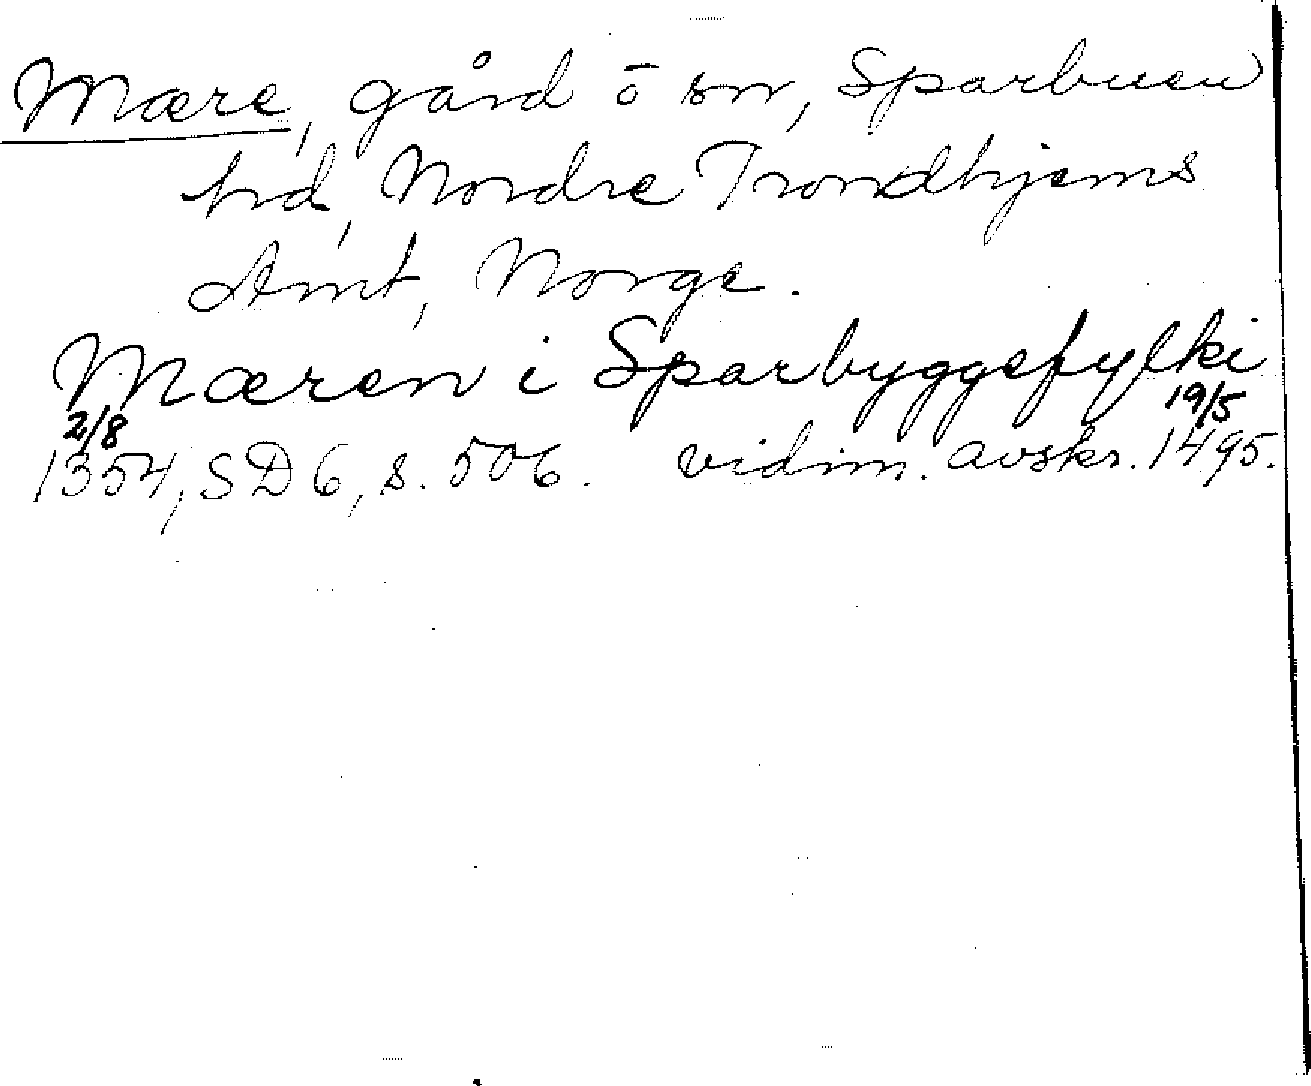 Mære, gård ō sn, Sparbuen
hd, Nordre Trondhjems
Amt, Norge.
Mæren i Sparbyggefylki
2/8 19/5
1354, SD 6, s. 506. vidim. avskr. 1495.